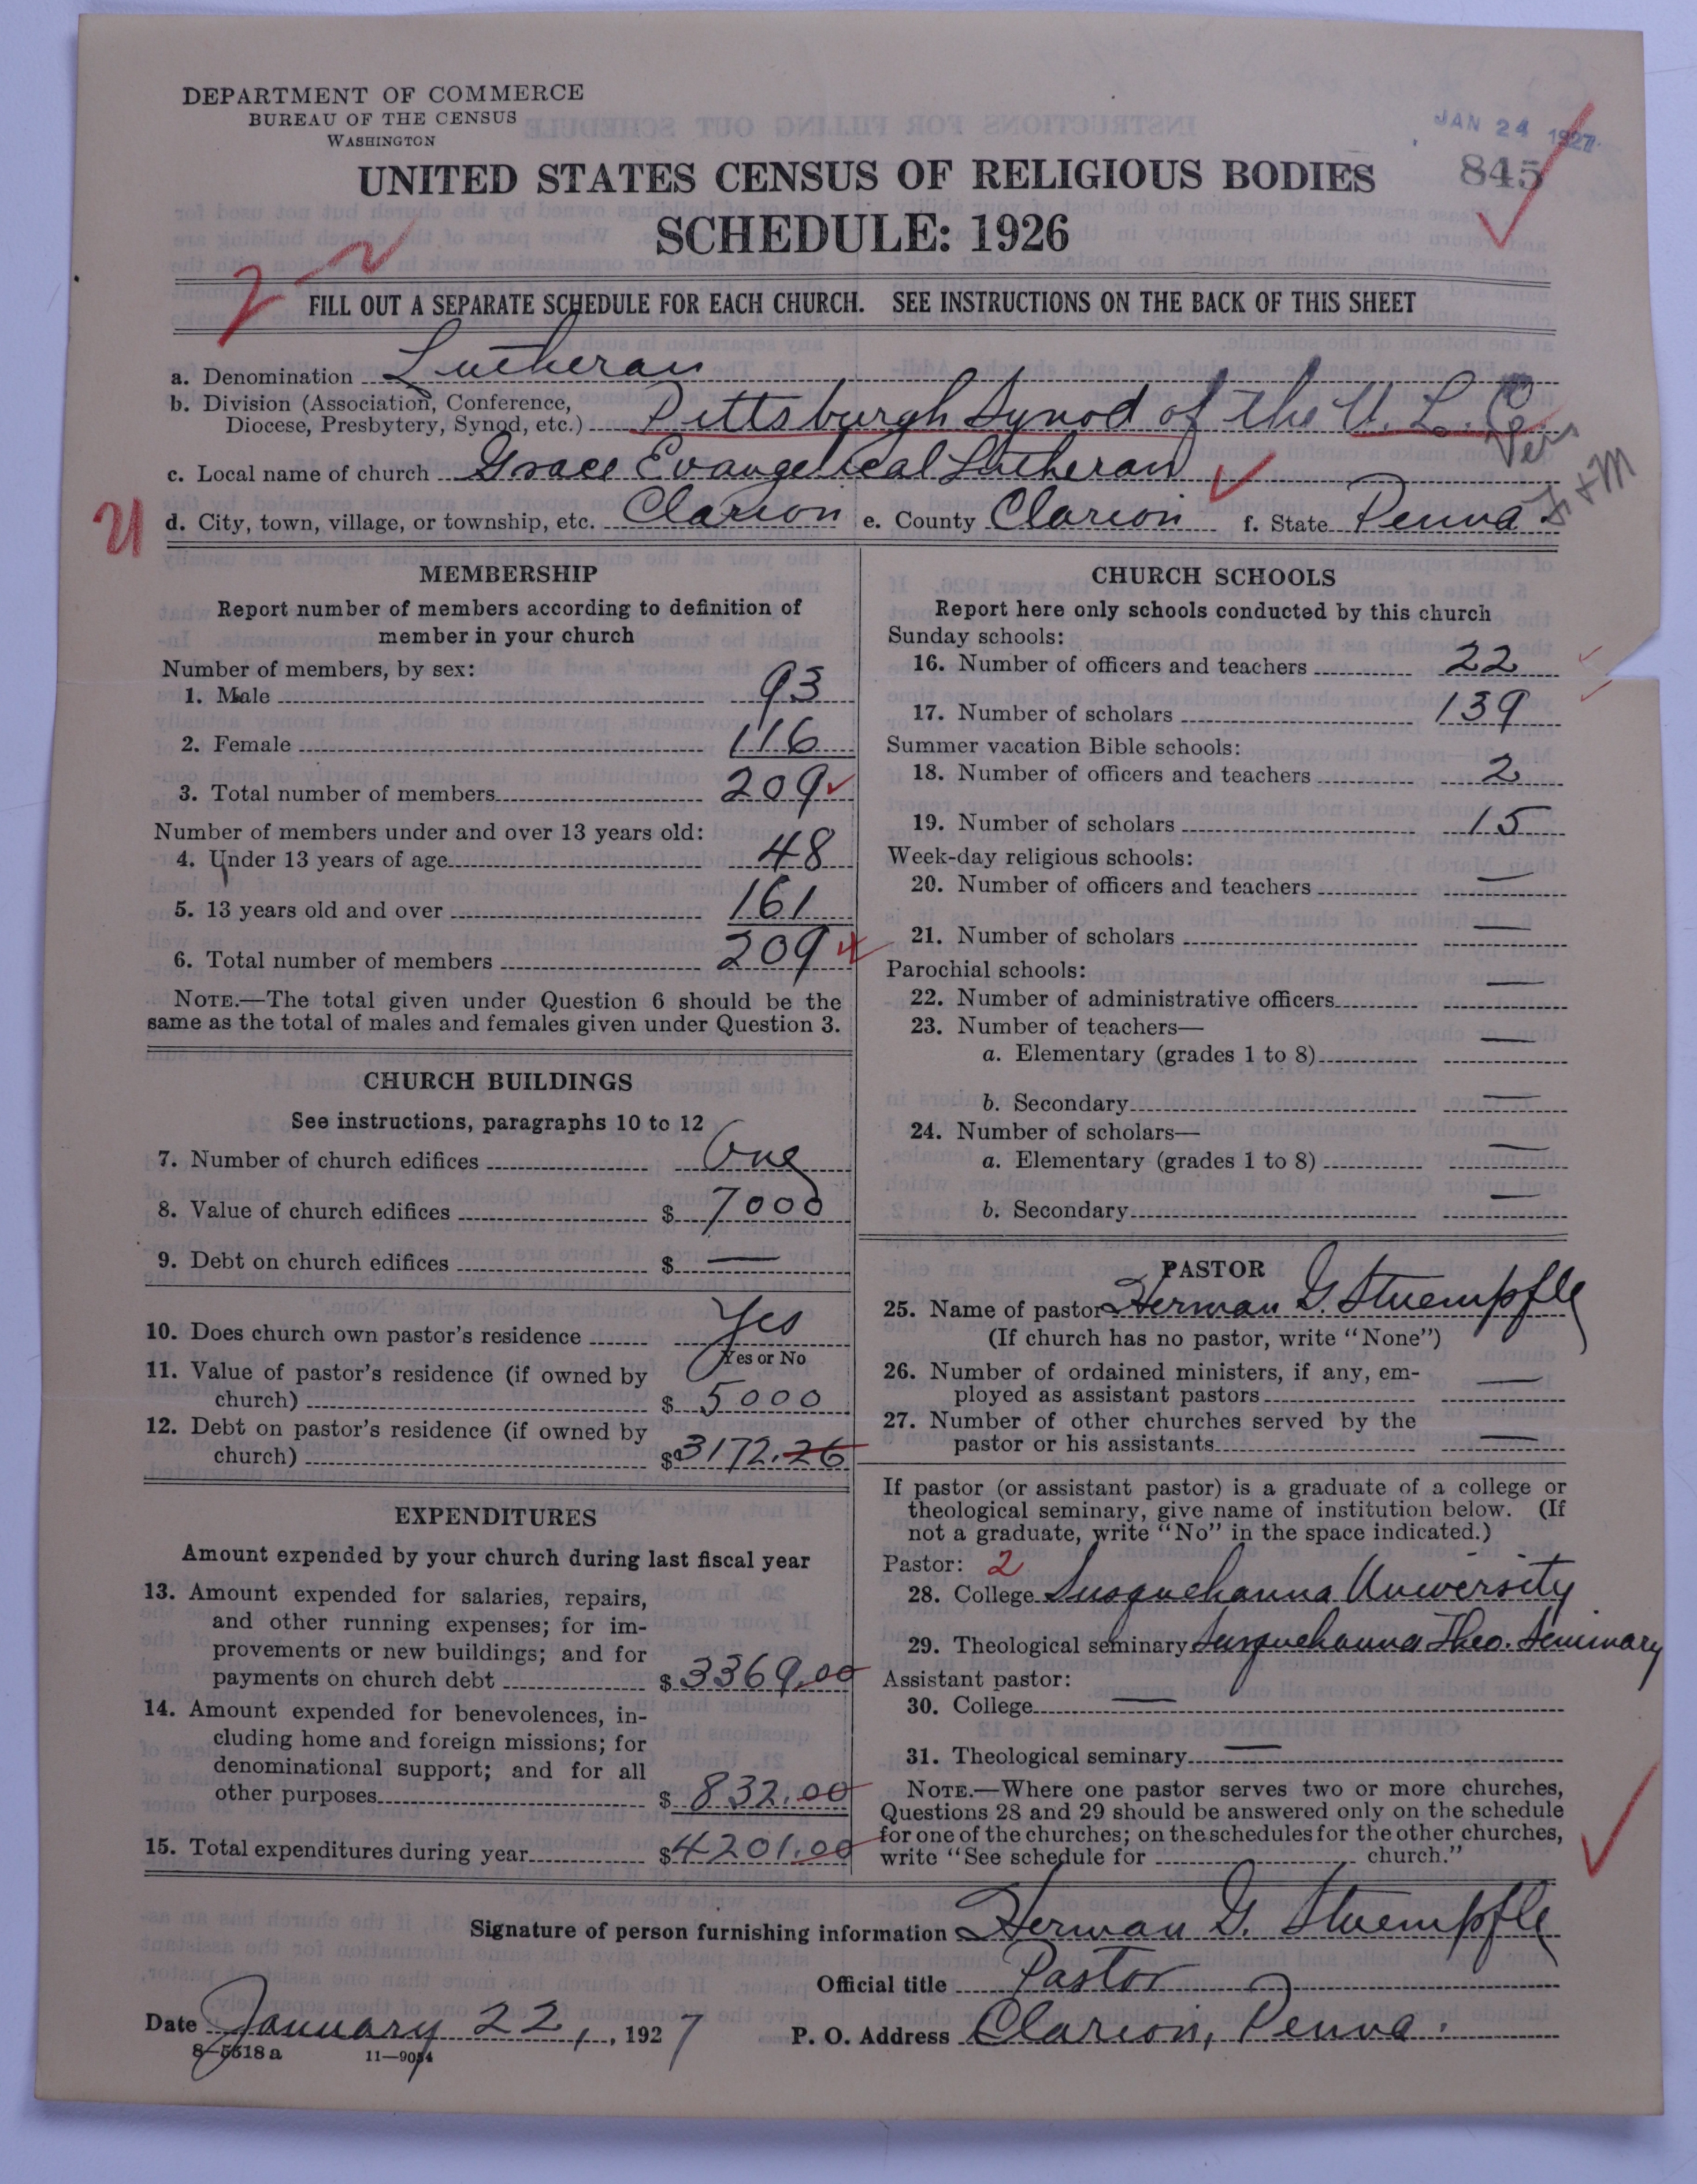 DEPARTMENT OF COMMERCE
BUREAU OF THE CENSUS
WASHINGTON
JAN 24 1927
845
UNITED STATES CENSUS OF RELIGIOUS BODIES
SCHEDULE: 1926
FILL OUT A SEPARATE SCHEDULE FOR EACH CHURCH. SEE INSTRUCTIONS ON THE BACK OF THIS SHEET
a. Denomination Lutheran
b. Division (Association, Conference,
Diocese, Presbytery, Synod, etc.) Pittsburgh Synod of the U. L. C.
c. Local name of church Grace Evangelical Lutheran
21
d. City, town, village, or township, etc. Clarion e. County Clarion f. State Penna
MEMBERSHIP
Report number of members according to definition of
member in your church
Number of members, by sex:
1. Male 93
2. Female 116
3. Total number of members 209
Number of members under and over 13 years old:
4. Under 13 years of age 48
5. 13 years old and over 161
6. Total number of members 209
NOTE.—The total given under Question 6 should be the
same as the total of males and females given under Question 3.
CHURCH BUILDINGS
See instructions, paragraphs 10 to 12
7. Number of church edifices One
8. Value of church edifices $ 7000
9. Debt on church edifices $ —
10. Does church own pastor's residence Yes
Yes or No
11. Value of pastor's residence (if owned by
church) $ 5000
12. Debt on pastor's residence (if owned by
church) $ 3172.26
EXPENDITURES
Amount expended by your church during last fiscal year
13. Amount expended for salaries, repairs,
and other running expenses; for im-
provements or new buildings; and for
payments on church debt $ 3369.00
14. Amount expended for benevolences, in-
cluding home and foreign missions; for
denominational support; and for all
other purposes $ 832.00
15. Total expenditures during year $ 4201.00
CHURCH SCHOOLS
Report here only schools conducted by this church
Sunday schools:
16. Number of officers and teachers 22
17. Number of scholars 139
Summer vacation Bible schools:
18. Number of officers and teachers 2
19. Number of scholars 15
Week-day religious schools:
20. Number of officers and teachers —
21. Number of scholars —
Parochial schools:
22. Number of administrative officers —
23. Number of teachers—
a. Elementary (grades 1 to 8) —
b. Secondary —
24. Number of scholars—
a. Elementary (grades 1 to 8) —
b. Secondary —
PASTOR
25. Name of pastor Herman G. Stuempfle
(If church has no pastor, write "None")
26. Number of ordained ministers, if any, em-
ployed as assistant pastors —
27. Number of other churches served by the
pastor or his assistants —
If pastor (or assistant pastor) is a graduate of a college or
theological seminary, give name of institution below. (If
not a graduate, write "No" in the space indicated.)
Pastor: 2
28. College Susquehanna University
29. Theological seminary Susquehanna Theo. Seminary
Assistant pastor:
30. College —
31. Theological seminary —
NOTE.—Where one pastor serves two or more churches,
Questions 28 and 29 should be answered only on the schedule
for one of the churches; on the schedules for the other churches,
write "See schedule for church."
Signature of person furnishing information Herman G. Stuempfle
Official title Pastor
Date January 22, , 1927 P. O. Address Clarion, Penna.
8-5518 a 11—9034